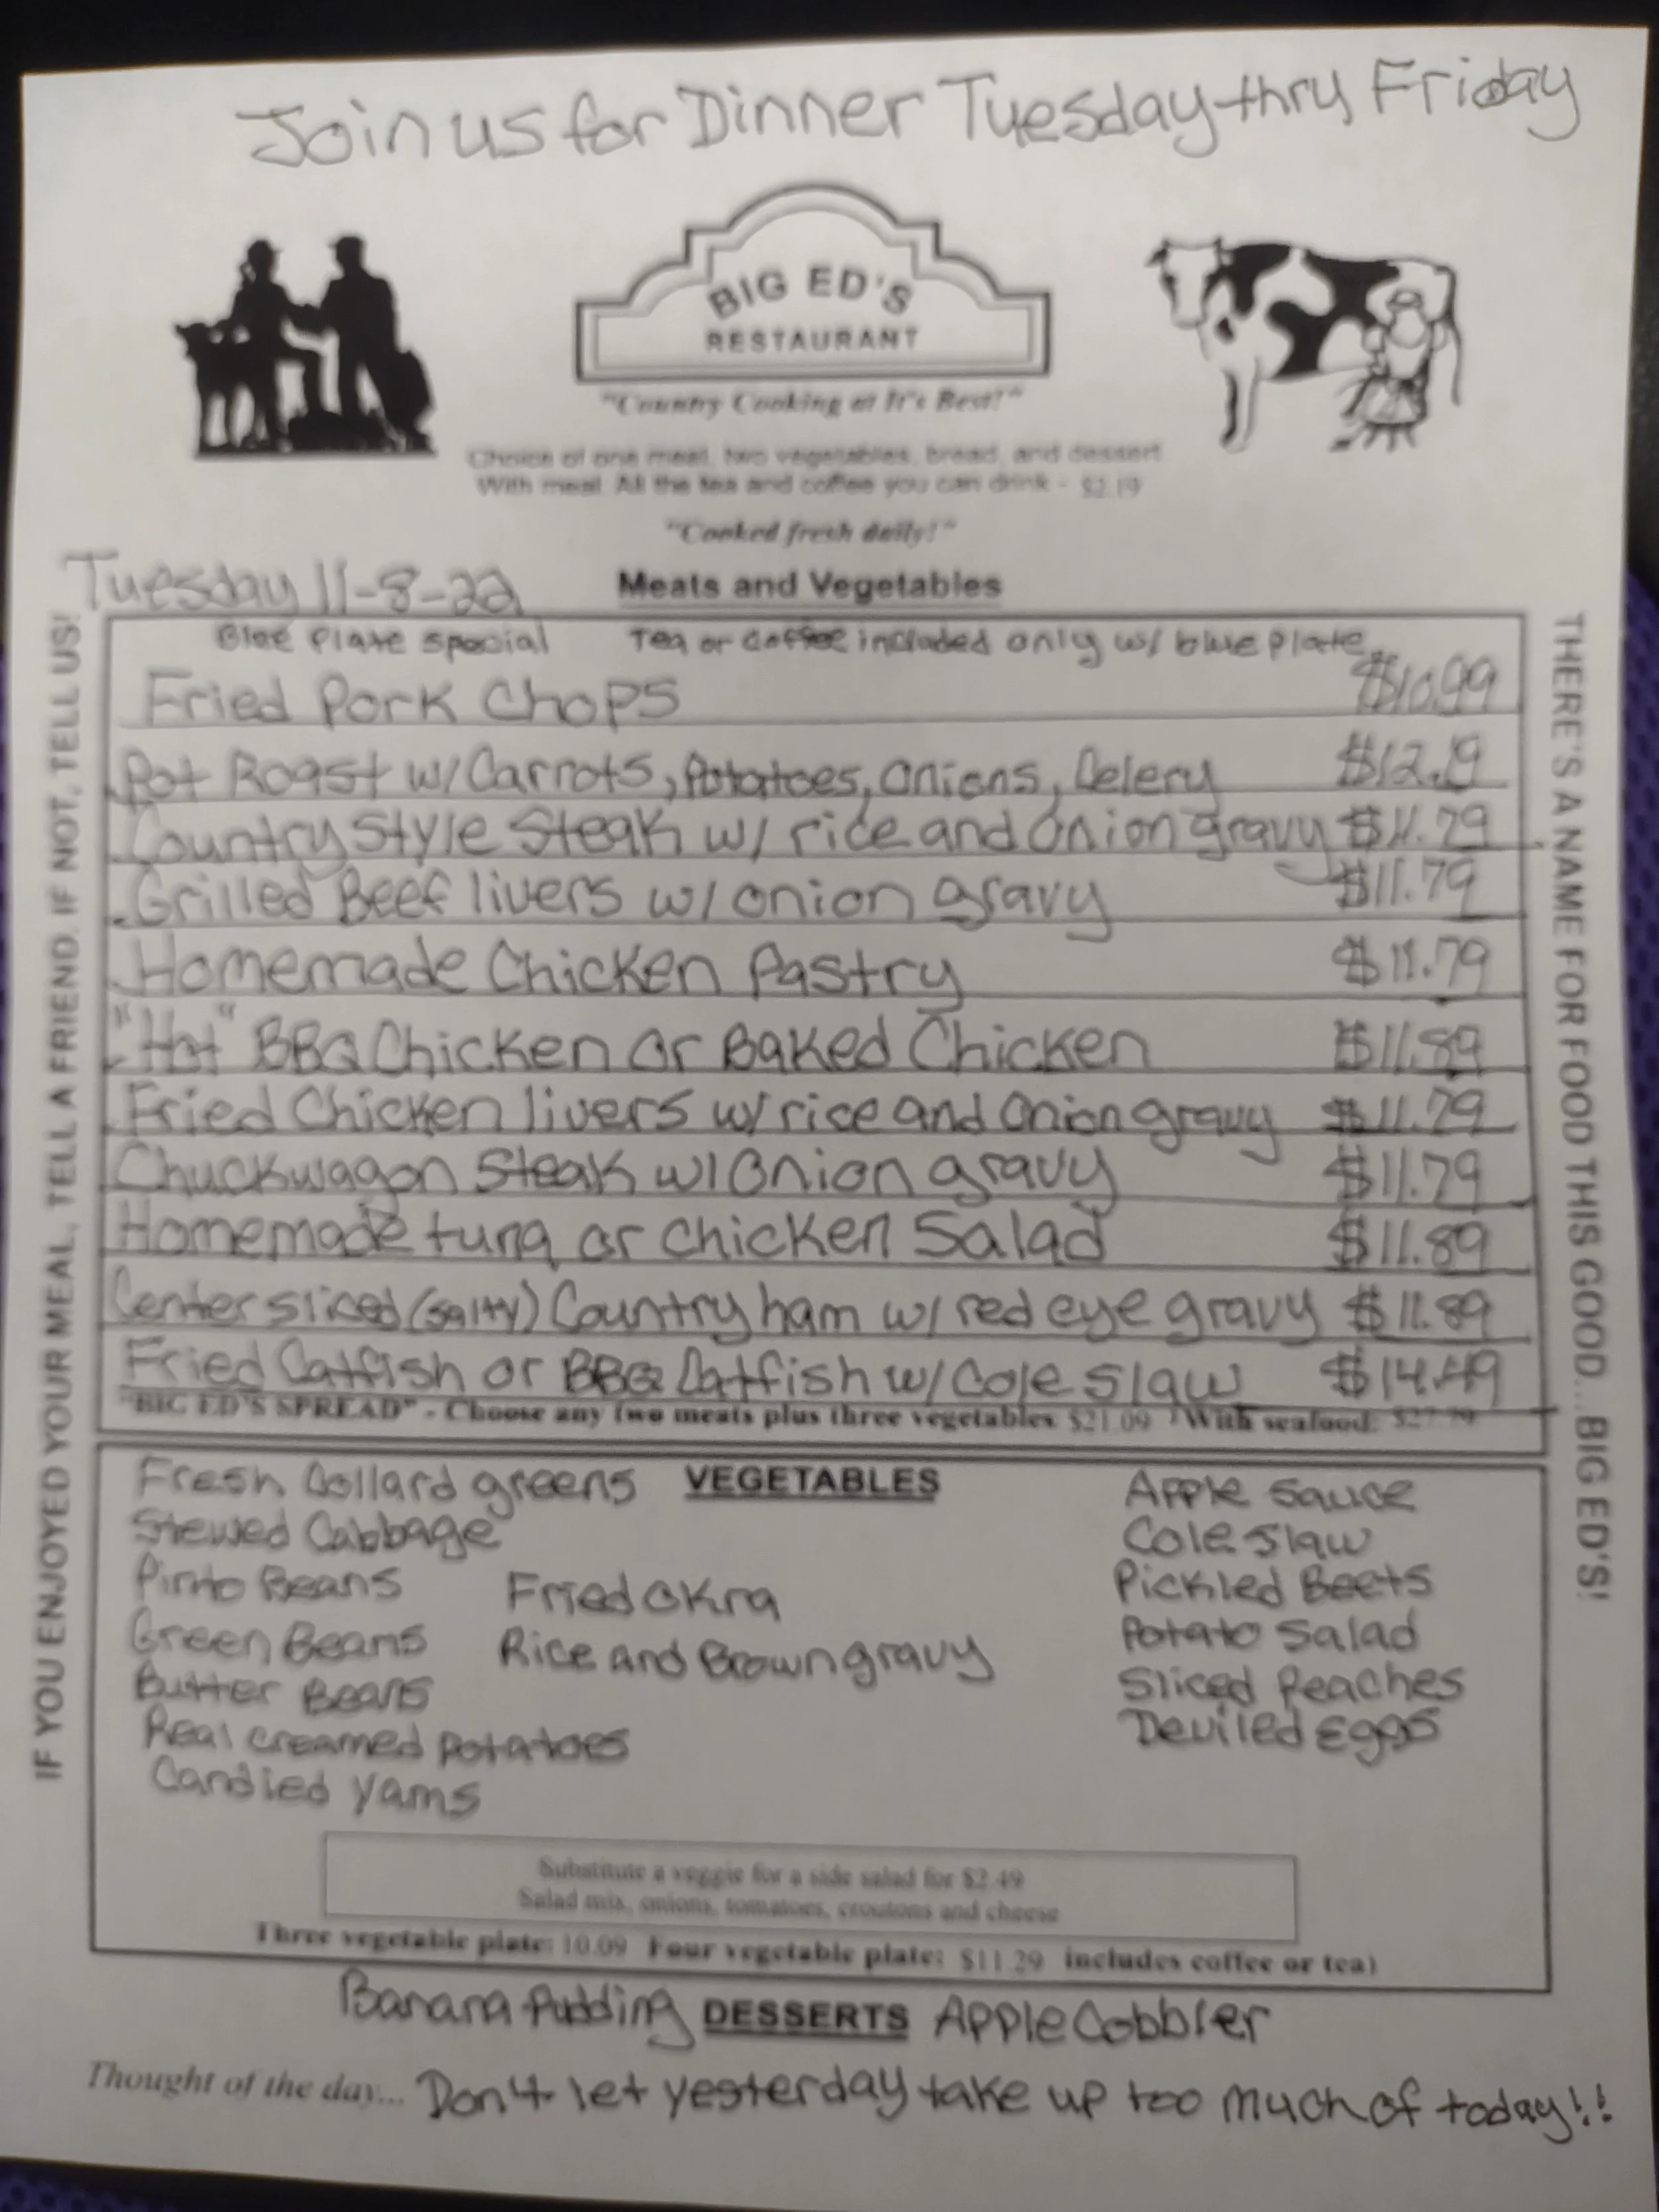 Join us for Dinner Tuesday thru Friday
BIG ED'S
RESTAURANT
"Country Cooking at It's Best!"
Choice of one meat, two vegetables, bread, and dessert
With meal: All the tea and coffee you can drink - $2.19
"Cooked fresh daily!"
Tuesday 11-8-22
Meats and Vegetables
Blue Plate Special Tea or Coffee included only w/ blue plate
Fried Pork Chops $10.99
Pot Roast w/ Carrots, Potatoes, Onions, Celery $12.19
Country Style Steak w/ rice and onion gravy $11.79
Grilled Beef livers w/ onion gravy $11.79
Homemade Chicken Pastry $11.79
"Hot" BBQ Chicken or Baked Chicken $11.89
Fried Chicken livers w/ rice and Onion gravy $11.79
Chuckwagon Steak w/ Onion gravy $11.79
Homemade tuna or chicken Salad $11.89
Center sliced (salty) Country ham w/ red eye gravy $11.89
Fried Catfish or BBQ Catfish w/ Cole slaw $14.49
"BIG ED'S SPREAD" - Choose any two meats plus three vegetables $21.09 With seafood: $27.79
VEGETABLES
Fresh Collard greens
Stewed Cabbage
Pinto Beans
Green Beans
Butter Beans
Real creamed potatoes
Candied yams
Fried Okra
Rice and Brown gravy
Apple Sauce
Cole Slaw
Pickled Beets
Potato Salad
Sliced Peaches
Deviled Eggs
Substitute a veggie for a side salad for $2.49
Salad mix, onions, tomatoes, croutons and cheese
Three vegetable plate: 10.09 Four vegetable plate: $11.29 includes coffee or tea)
Banana Pudding DESSERTS Apple Cobbler
Thought of the day... Don't let yesterday take up too much of today!!
IF YOU ENJOYED YOUR MEAL, TELL A FRIEND. IF NOT, TELL US!
THERE'S A NAME FOR FOOD THIS GOOD...BIG ED'S!